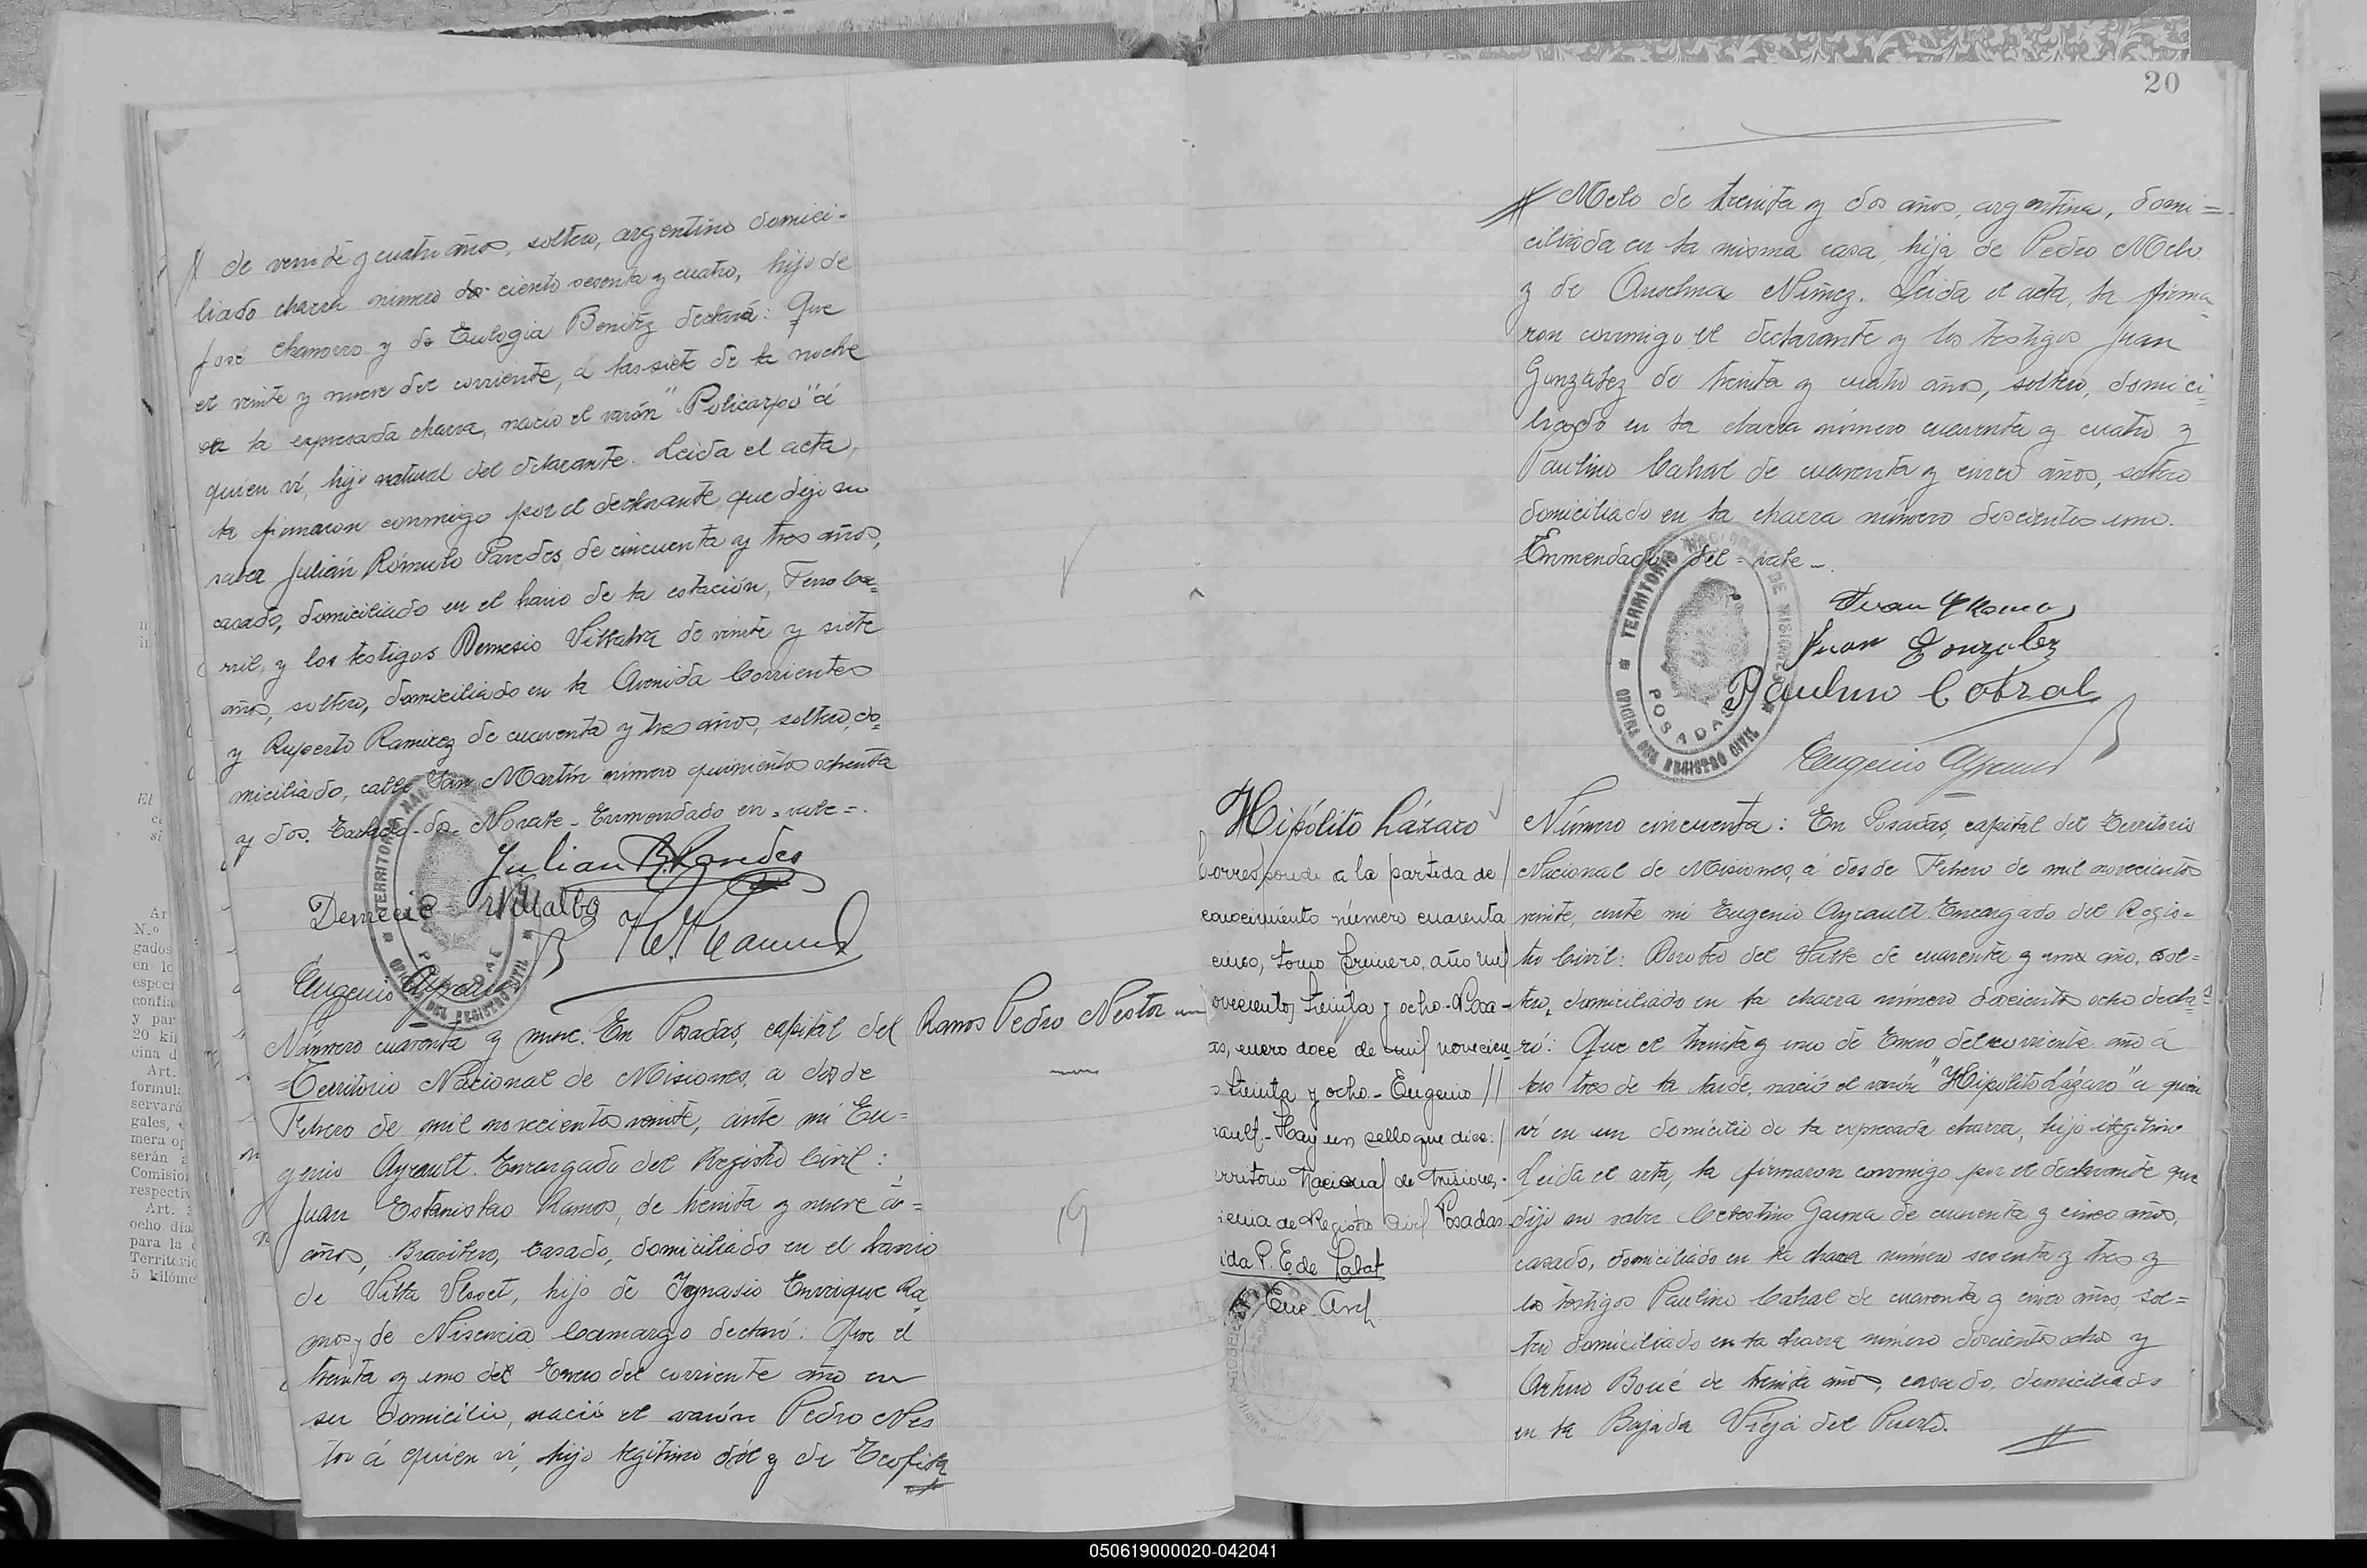 de veinte y cuatro años, soltero, argentino domici-
liado chacra número do ciento sesenta y cuatro, hijo de
José Chamorro y de Eulogia Benitez declaró: Que
el veinte y nueve del corriente, á las siete de la noche
en la expresada chacra, nació el varón "Policarpo" á
quien ví, hijo natural del declarante. Leida el acta,
la firmaron conmigo por el declarante que dijo no
saber Julián Rómulo Paredes, de cincuenta y tres años,
casado, domiciliado en el barrio de la estación, Ferro ca=
rril, y los testigos Demesio Villalba de veinte y siete
años, soltero, domiciliado en la Avenida Corrientes
y Ruperto Ramirez de cuarenta y tres años, soltero, do=
miciliado, calle San Martín número quinientos ochenta
y dos. Testado-do- No vale- Enmendado en = vale =.
Julian R. Paredes
Demecio Villalba
Eugenio Ayrault
Número cuarenta y nueve. En Posadas, capital del
Territorio Nacional de Misiones, a dos de
Febrero de mil novecientos veinte, ante mí Eu=
genio Ayrault. Encargado del Registro Civil:
Juan Estanislao Ramos, de treinta y nueve
años, Brasilero, casado, domiciliado en el barrio
de Villa , hijo de Ygnasio Enrrique Ra
mos y de Nisencia Camargo declaró: Que el
treinta y uno del Enero del corriente año en
su domicilio, nació el varón Pedro Nes
tor á quien ví, hijo legítimo del y de Teofila
Ramos Pedro Nestor
19
20
Melo de treinta y dos años, argentina, domi=
ciliada en la misma casa, hija de Pedro Melo
y de Anselma Nuñez. Leida el acta, la firma
ron conmigo el declarante y los testigos Juan
González de treinta y cuatro años, soltero, domici
liado en la chacra número cuarenta y cuatro y
Paulino Cabral de cuarenta y cinco años, soltero
domiciliado en la chacra número doscientos uno.
Enmendado del = vale -.
TERRITORIO NACIONAL DE MISIONES
OFICINA DEL REGISTRO CIVIL
POSADAS
Juan Ramos
Juan Gonzalez
Paulino Cabral
Eugenio Ayrault
Hipólito Lázaro
Corresponde a la partida de
conocimiento número cuarenta
cinco, tomo primero, año mil
ovecientos treinta y ocho - Posa-
as, enero doce de mil novecien
s treinta y ocho - Eugenio
rault - Hay un sello que dice:
erritorio Nacional de Misiones -
Registro Civil Posadas
ida P. E de Labat
Número cincuenta: En Posadas, capital del Territorio
Nacional de Misiones, á dos de Febrero de mil novecientos
veinte, ante mí Eugenio Ayrault. Encargado del Regis=
tro Civil: Doroteo del Valle de cuarenta y un año, sol=
tero, domiciliado en la chacra número doscientos ocho decla=
ró: Que el treinta y uno de Enero del corriente año á
las tres de la tarde, nació el varón "Hipólito Lázaro" a quien
ví en un domicilio de la expresada chacra, hijo ilegítimo
Leida el acta, la firmaron conmigo por el declarante que
dijo no saber Celestino Gauna de cuarenta y cinco años,
casado, domiciliado en la chacra número sesenta y tres y
los testigos Paulino Cabral de cuarenta y cinco años, sol=
tero domiciliado en la chacra número doscientos ocho y
Arturo Boué de treinta años, casado, domiciliado
en la Bajada Vieja del Puerto.
050619000020-042041